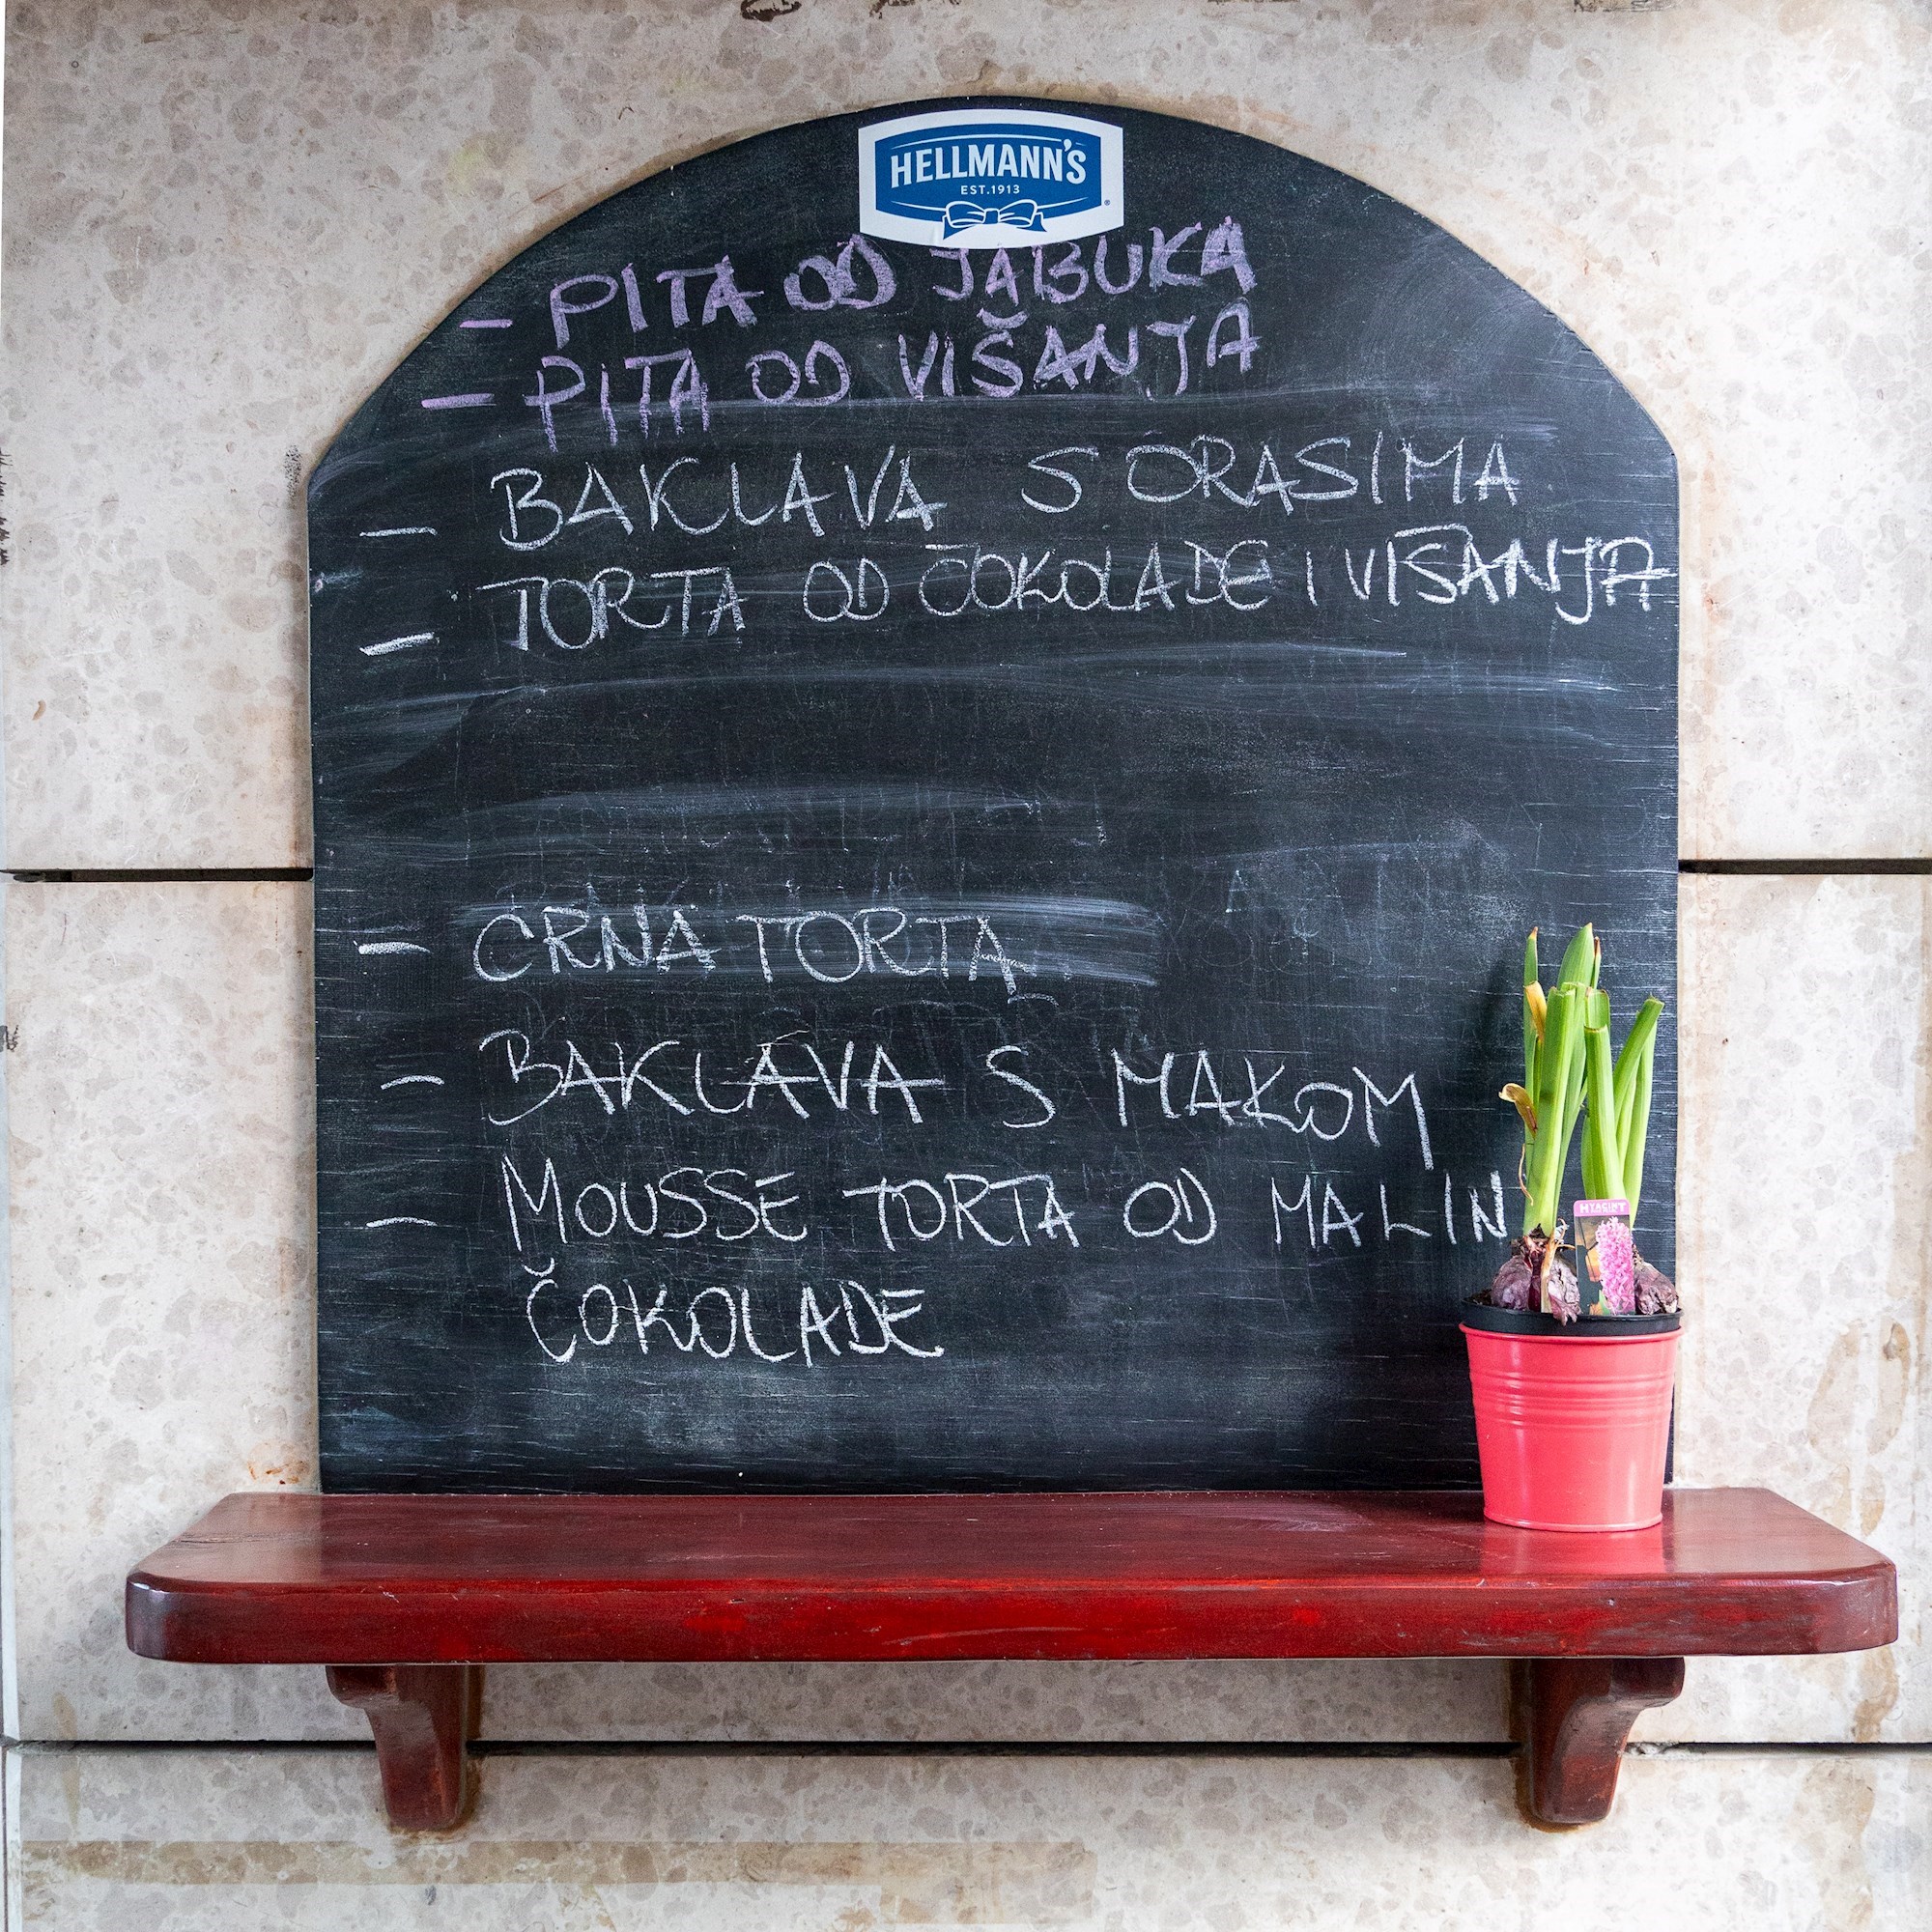 HELLMANN'S
EST.1913
- PITA OD JABUKA
- PITA OD VIŠANJA
- BAKLAVA S ORASIMA
- TORTA OD ČOKOLADE I VIŠANJA
- CRNA TORTA
- BAKLAVA S MAKOM
- MOUSSE TORTA OD MALIN
ČOKOLADE